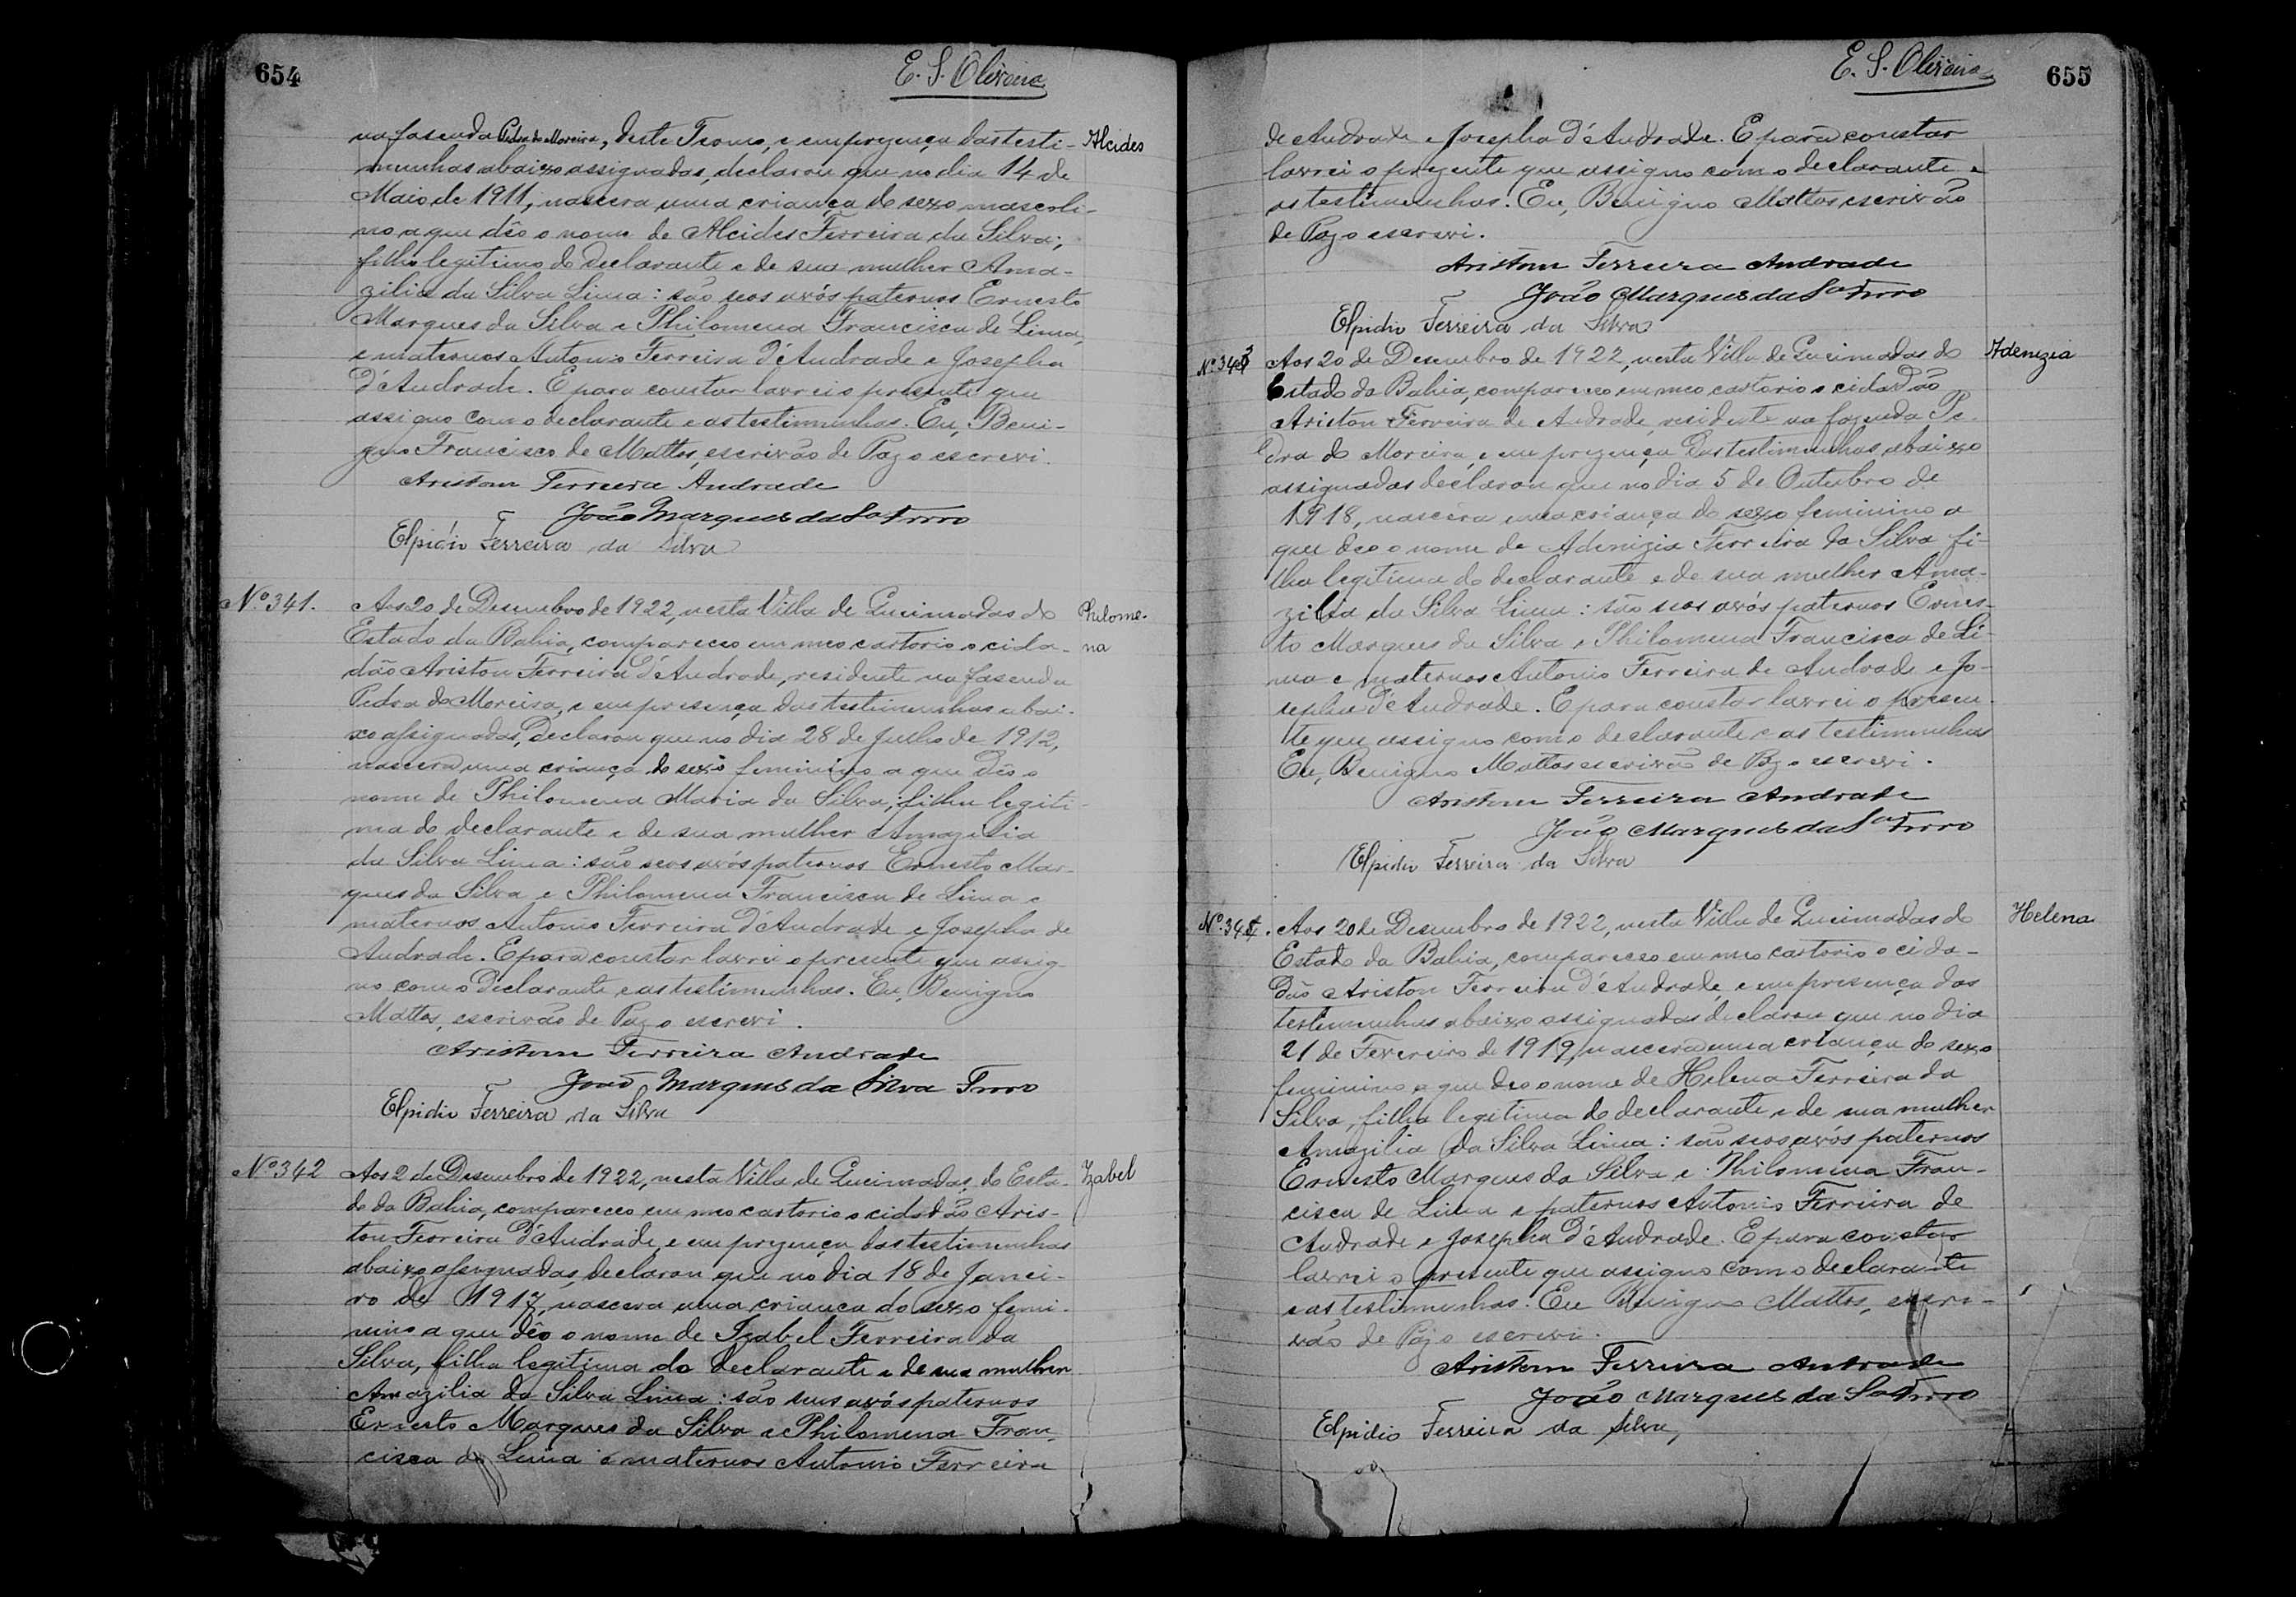 654
E. S. Oliveira
na fasenda Pedra do Moreira, deste Termo, e em prezença das testi-
Alcides
munhas abaixo assignadas, declarou que no dia 14 de
Maio de 1911, nascera uma criança do sexo masculi-
no a que dêo o nome de Alcides Ferreira da Silva;
filho legitimo do declarante e de sua mulher Ama-
zilia da Silva Lima: são seos avós paternos Ernesto
Marques da Silva e Philomena Francisca de Lima,
e maternos Antonio Ferreira d'Andrade e Josepha
d'Andrade. E para constar lavrei o presente que
assigno com o declarante e as testimunhas. Eu, Beni-
gno Francisco de Mattos, escrivão de Paz o escrevi.
Ariston Ferreira Andrade
João Marques da Sa
Elpidio Ferreira da Silva
Nº 341.
Aos 20 de Desembro de 1922, nesta Villa de Queimadas do
Philome-
Estado da Bahia, compareceo em meo cartorio o cida-
na
dão Ariston Ferreira d'Andrade, residente na fasenda
Pedra do Moreira, e em presença das testimunhas abai-
xo assignadas, declarou que no dia 28 de Julho de 1912,
nascera uma criança do sexo feminino a que dêo o
nome de Philomena Maria da Silva; filha legiti-
ma do declarante e de sua mulher Amazilia
da Silva Lima: são seos avós paternos Ernesto Mar-
ques da Silva e Philomena Francisca de Lima e
maternos Antonio Ferreira d'Andrade e Josepha de
Andrade. E para constar lavrei o presente que assig-
no com o declarante e as testimunhas. Eu, Benigno
Mattos, escrivão de Paz o escrevi.
Ariston Ferreira Andrade
João Marques da Silva
Elpidio Ferreira da Silva
Nº 342
Aos 2 de Desembro de 1922, nesta Villa de Queimadas, do Esta-
Izabel
do da Bahia, compareceo em meo cartorio o cidadão Aris-
ton Ferreira d'Andrade, e em prezença das testimunhas
abaixo assignadas, declarou que no dia 18 de Janei-
ro de 1917, nascera uma criança do sexo femi-
nino a que dêo o nome de Izabel Ferreira da
Silva, filha legitima do declarante e de sua mulher
Amazilia da Silva Lima: são seus avós paternos
Ernesto Marques da Silva e Philomena Fran-
cisca de Lima e maternos Antonio Ferreira
E. S. Oliveira
655
de Andrade e Josepha d'Andrade. E para constar
lavrei o prezente que assigno com o declarante e
as testimunhas. Eu, Benigno Mattos escrivão
de Paz o escrevi.
Ariston Ferreira Andrade
João Marques da Sa
Elpidio Ferreira da Silva
Nº 343
Aos 20 de Desembro de 1922, nesta Villa de Queimadas do
Adenizia
Estado da Bahia, compareceo em meo cartorio o cidadão
Ariston Ferreira de Andrade, residente na fazenda Pe-
dra do Moreira, e em prezença das testimunhas abaixo
assignadas declarou que no dia 5 de Outubro de
1918, nascera uma criança do sexo feminino a
que deo o nome de Adenizia Ferreira da Silva fi-
lha legitima do declarante e de sua mulher Ama-
zilia da Silva Lima: são seos avós paternos Ernes-
to Marques da Silva e Philomena Francisca de Li-
ma e maternos Antonio Ferreira de Andrade e Jo-
sepha d'Andrade. E para constar lavrei o presen-
te que assigno com o declarante e as testimunhas
Eu, Benigno Mattos escrivão de Paz o escrevi.
Ariston Ferreira Andrade
João Marques da Sa
Elpidio Ferreira da Silva
Nº 344.
Aos 20 de Desembro de 1922, nesta Villa de Queimadas do
Helena
Estado da Bahia, compareceo em meo cartorio o cida-
dão Ariston Ferreira d'Andrade, e em presença das
testimunhas abaixo assignadas declarou que no dia
21 de Fevereiro de 1919, nascera uma criança do sexo
feminino a que deo o nome de Helena Ferreira da
Silva, filha legitima do declarante e de sua mulher
Amazilia da Silva Lima: são seos avós paternos
Ernesto Marques da Silva e Philomena Fran-
cisca de Lima e paternos Antonio Ferreira de
Andrade e Josepha d'Andrade. E para constar
lavrei o presente que assigno com o declarante
e as testimunhas. Eu Benigno Mattos, escri-
vão de Paz o escrevi.
Ariston Ferreira Andrade
João Marques da Sa
Elpidio Ferreira da Silva,